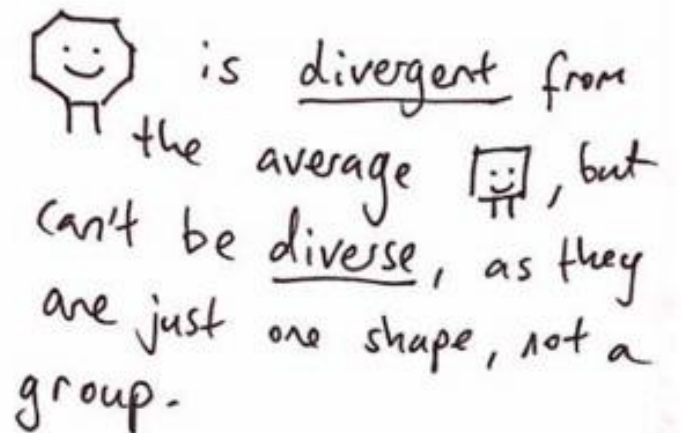 is divergent from
the average , but
can't be diverse, as they
are just one shape, not a
group.